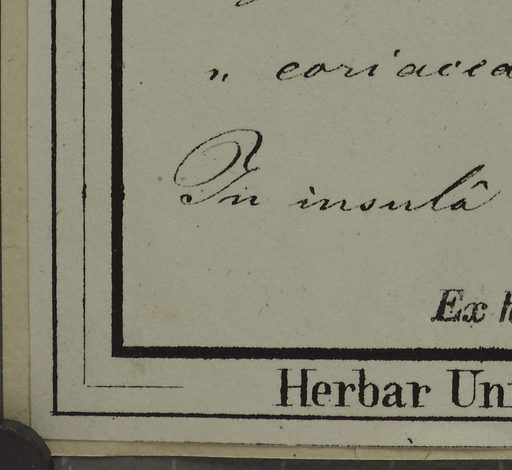 „ coriacea
In insulâ
Ex h
Herbar Uni